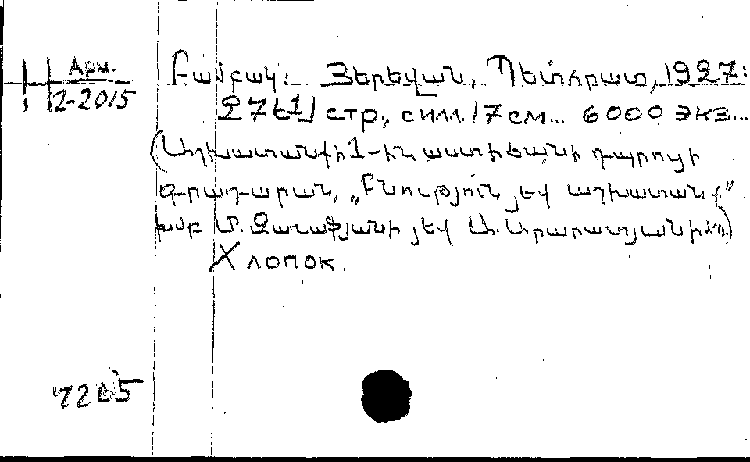 Арм.
2-2015
Բամբակ: Յերեվան, Պետհրատ, 1927:
27[1] стр., с илл. 17 см... 6000 экз...
(Աշխատանքի 1-ին աստիճանի դպրոցի
գրադարան, „Բնություն յեվ աշխատանք"
խմբ Մ. Զարաֆյանի յեվ Ա. Արարատյանի)
Хлопок.